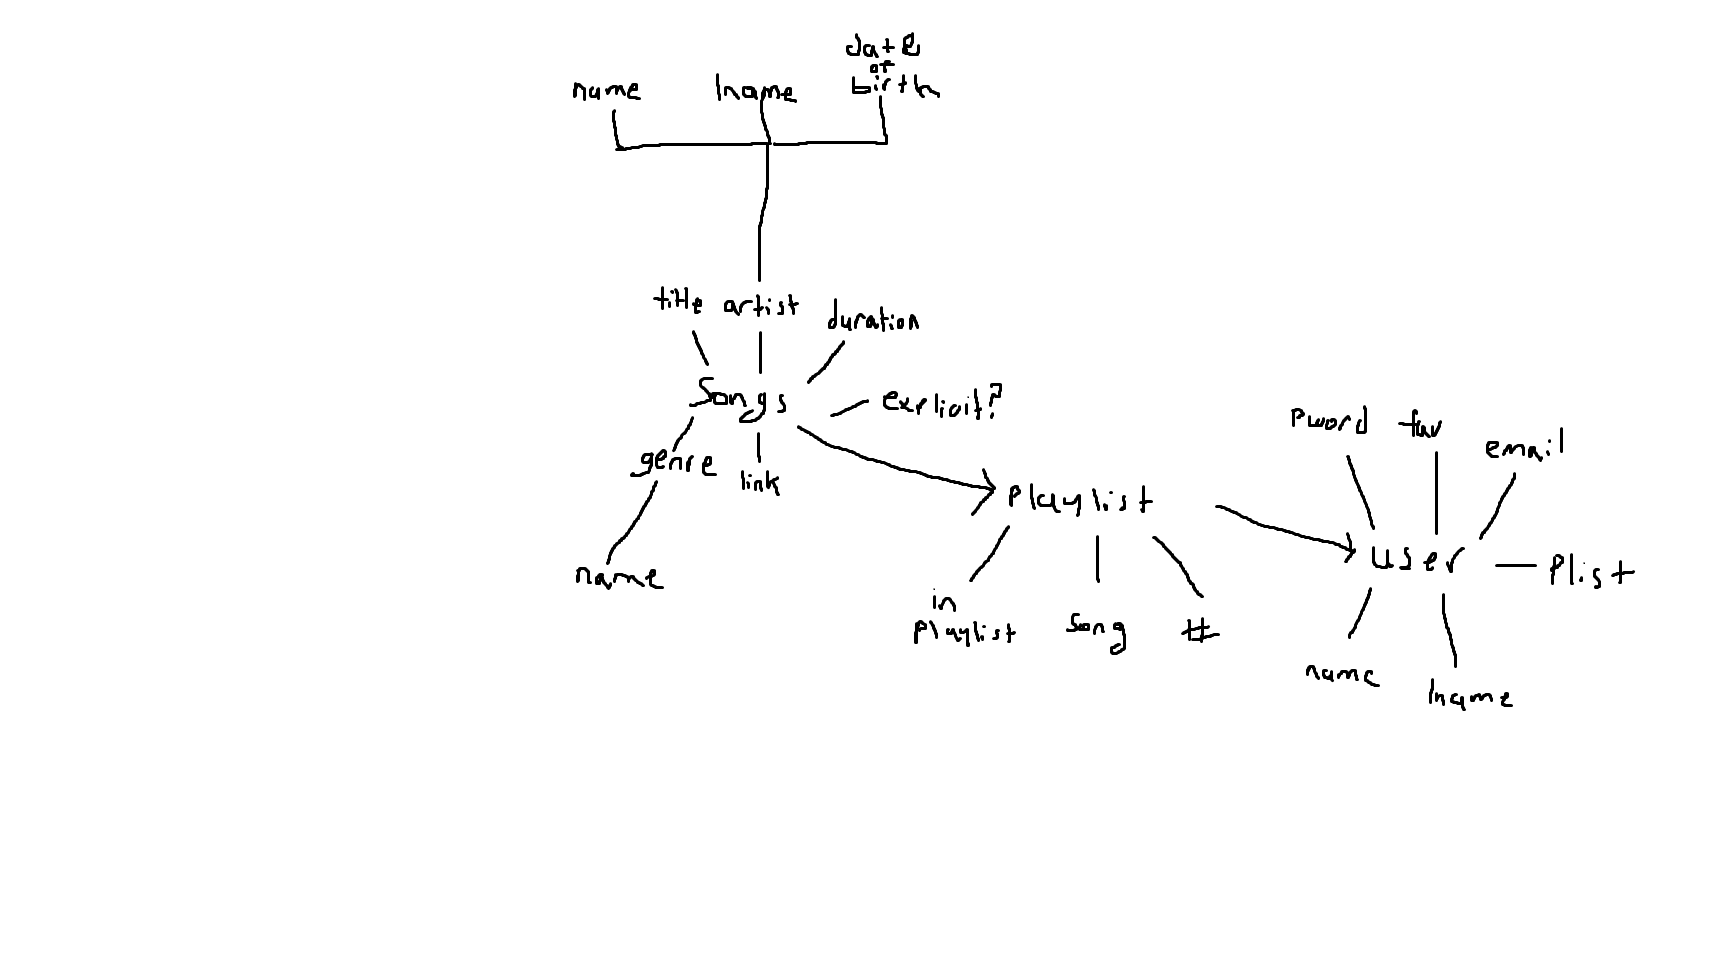 date
of
birth
name
lname
title
artist
duration
Songs
explicit?
genre
link
name
Playlist
in
Playlist
Song
#
Pword
fav
email
user
Plist
name
lname